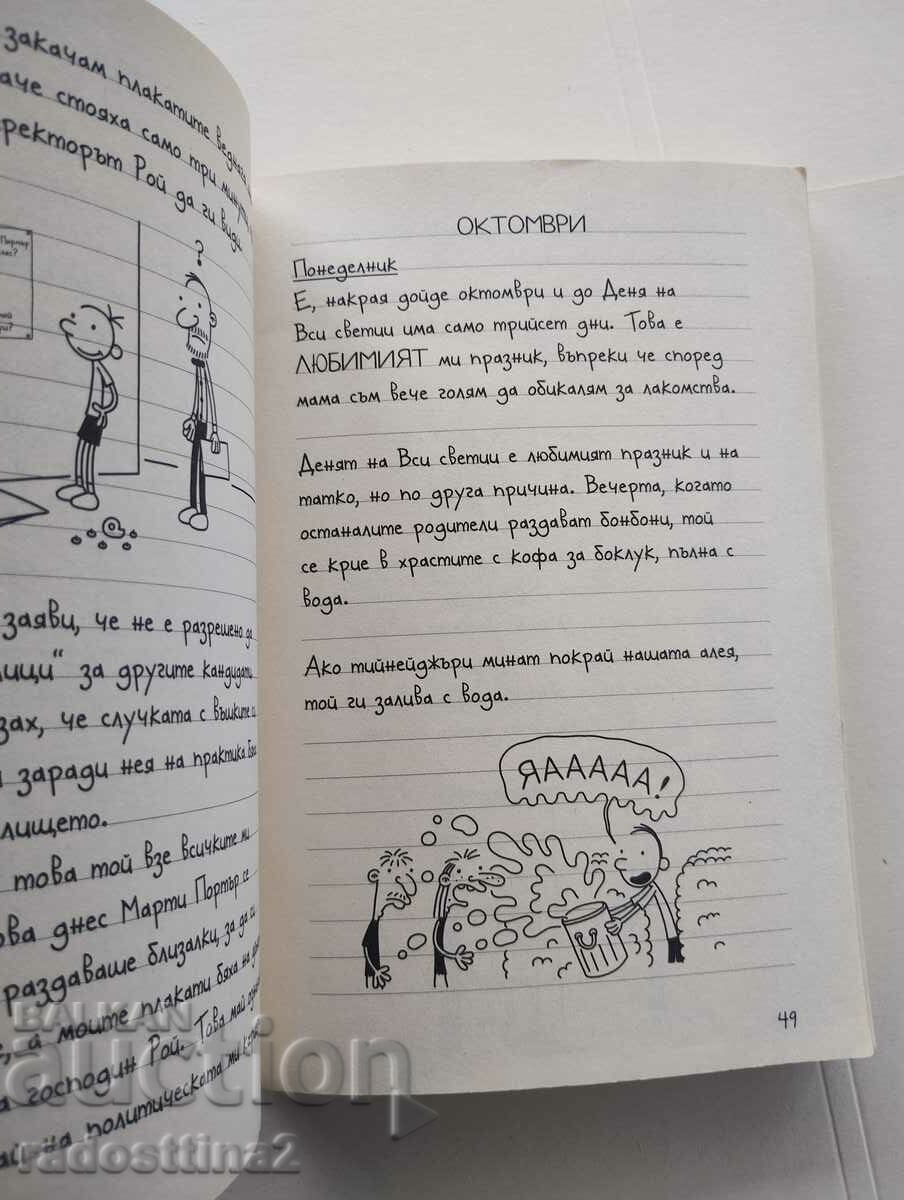 закачам плакатите веднага
аче стояха само три минути
ректорът Рой да ги види
?
заяви, че не е разрешено да
лици“ за другите кандидати
зах, че случката с въшките
заради нея на практика
лището.
това той взе всичките ми
ова днес Марти Портър се
раздаваше близалки, за да си
а моите плакати бяха на
господин Рой. Това май
на политическата ми
ОКТОМВРИ
Понеделник
Е, накрая дойде октомври и до Деня на
Вси светии има само трийсет дни. Това е
ЛЮБИМИЯТ ми празник, въпреки че според
мама съм вече голям да обикалям за лакомства.
Денят на Вси светии е любимият празник и на
татко, но по друга причина. Вечерта, когато
останалите родители раздават бонбони, той
се крие в храстите с кофа за боклук, пълна с
вода.
Ако тийнейджъри минат покрай нашата алея,
той ги залива с вода.
ЯААААА!
49
BALKAN
auction
radosttina2